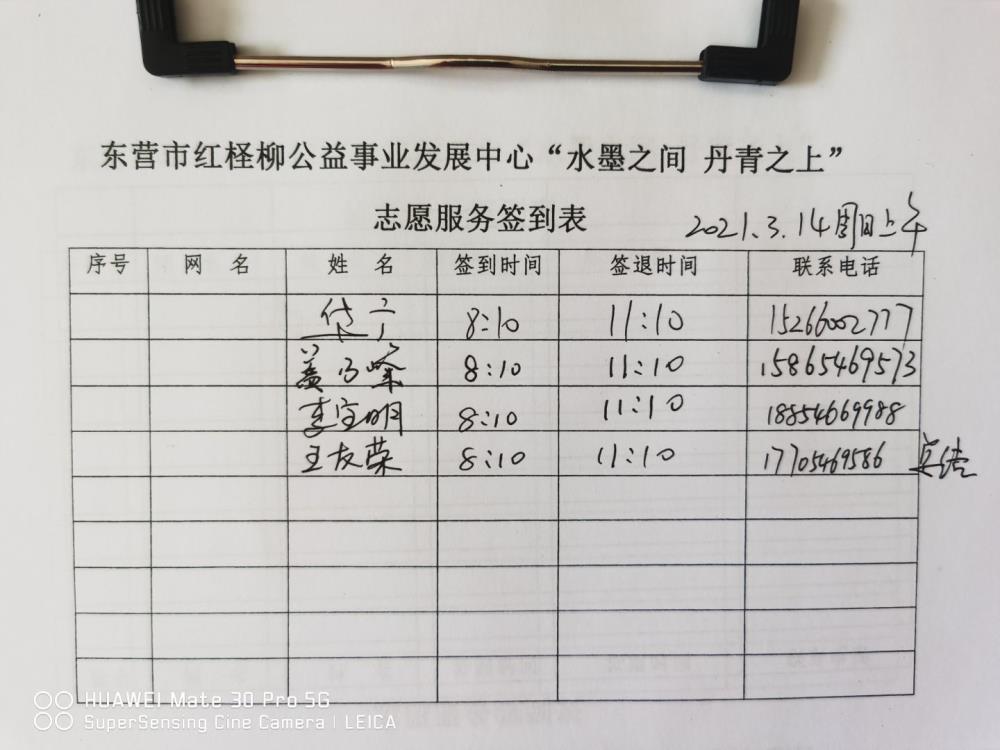 东营市红柽柳公益事业发展中心“水墨之间 丹青之上”
志愿服务签到表 2021.3.14周日上午
序号 网 名 姓 名 签到时间 签退时间 联系电话
8:10 11:10 15266002777
盖乃峰 8:10 11:10 15865469573
李宝明 8:10 11:10 18854669988
王友荣 8:10 11:10 17705469586
HUAWEI Mate 30 Pro 5G
SuperSensing Cine Camera | LEICA